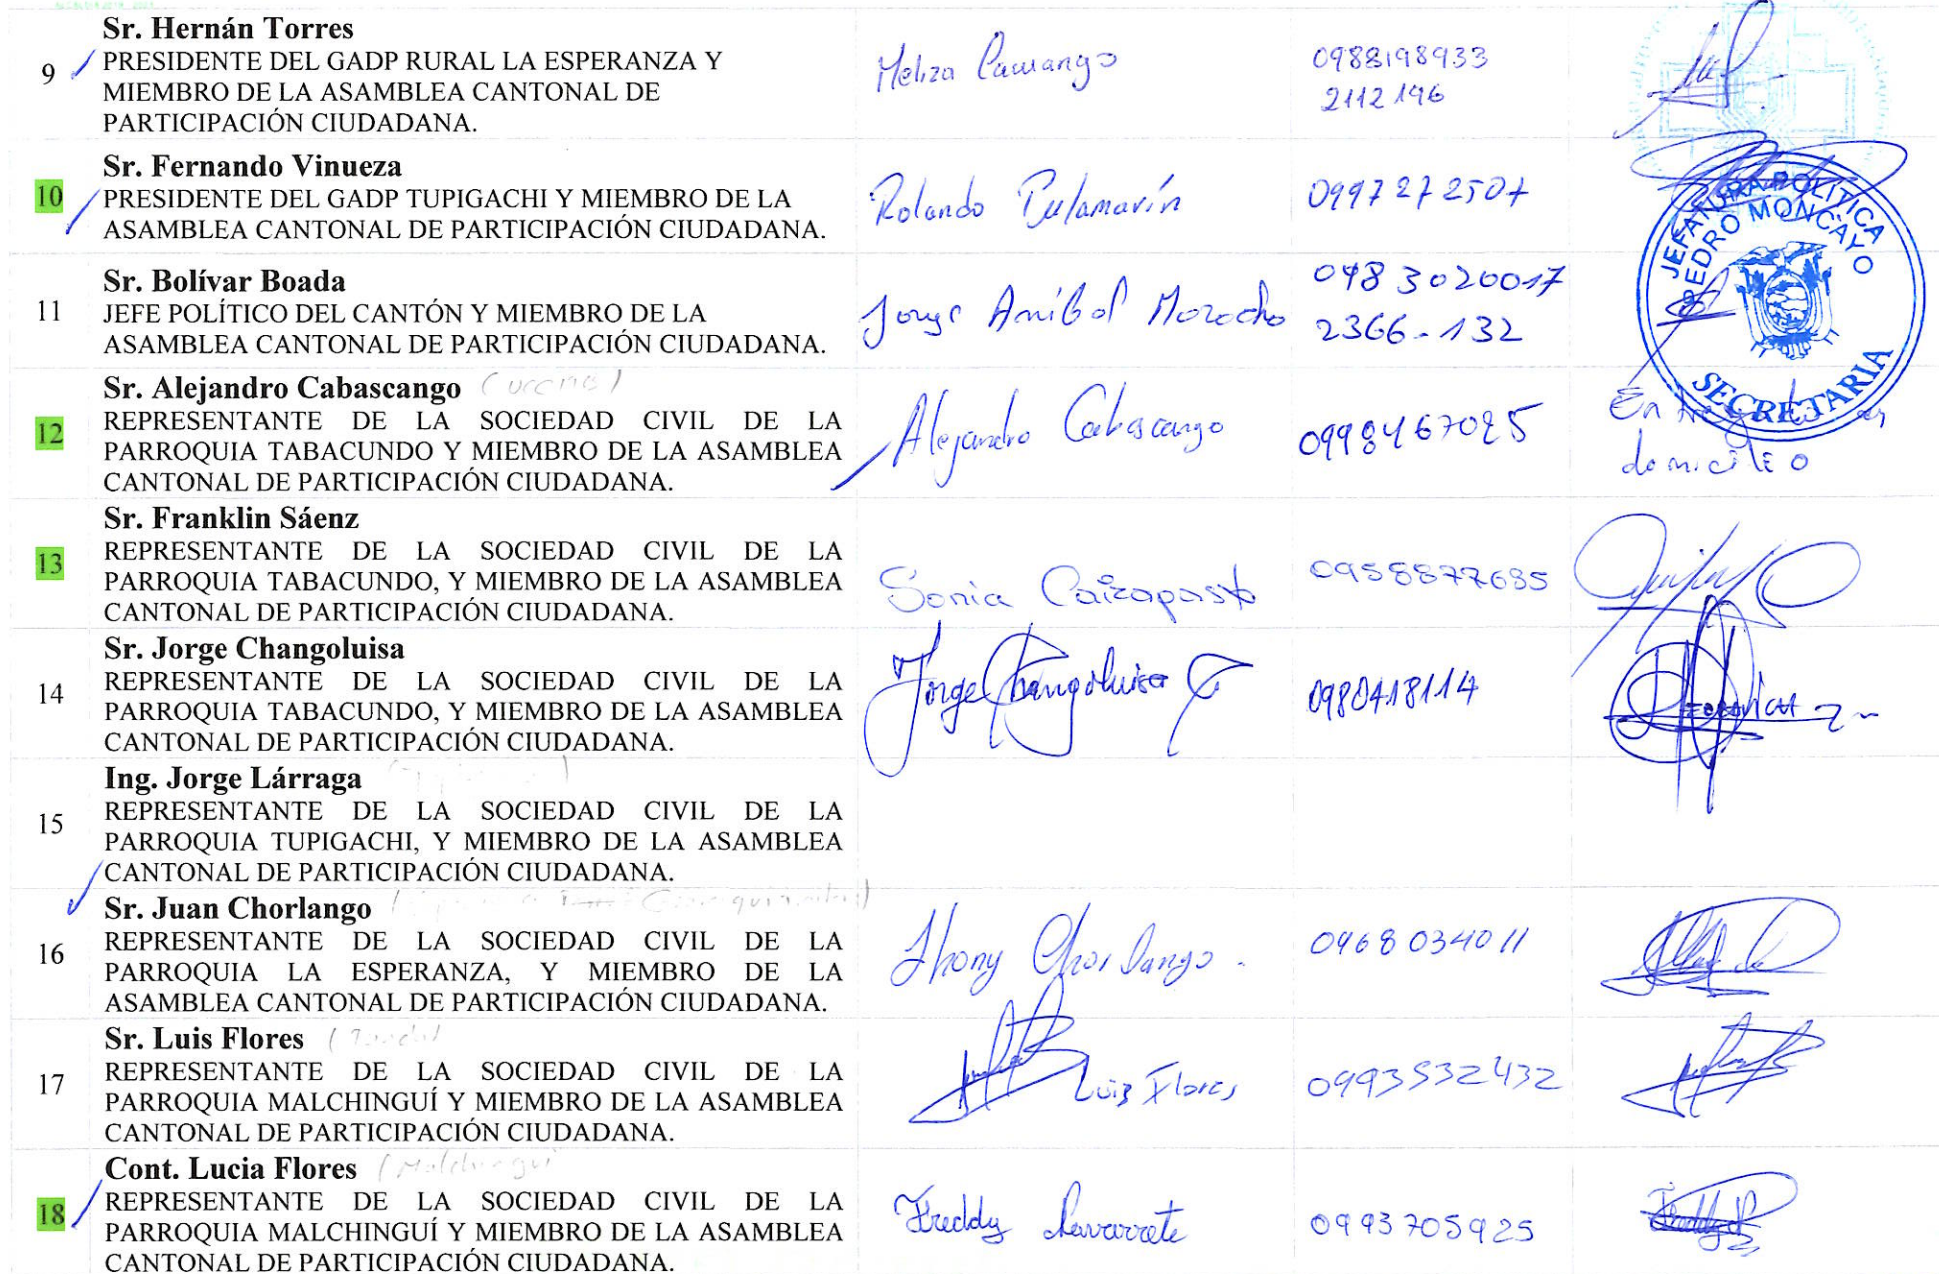 Sr. Hernán Torres
9 PRESIDENTE DEL GADP RURAL LA ESPERANZA Y
MIEMBRO DE LA ASAMBLEA CANTONAL DE
PARTICIPACIÓN CIUDADANA.
Meliza Camango
0988198933
2112196
Sr. Fernando Vinueza
10 PRESIDENTE DEL GADP TUPIGACHI Y MIEMBRO DE LA
ASAMBLEA CANTONAL DE PARTICIPACIÓN CIUDADANA.
Rolando Pulamarín
0997272507
JEFATURA POLÍTICA
PEDRO MONCAYO
SECRETARIA
Sr. Bolívar Boada
11 JEFE POLÍTICO DEL CANTÓN Y MIEMBRO DE LA
ASAMBLEA CANTONAL DE PARTICIPACIÓN CIUDADANA.
Jorge Aníbal Morocho
0983020017
2366-132
Sr. Alejandro Cabascango
12 REPRESENTANTE DE LA SOCIEDAD CIVIL DE LA
PARROQUIA TABACUNDO Y MIEMBRO DE LA ASAMBLEA
CANTONAL DE PARTICIPACIÓN CIUDADANA.
Alejandro Cabascango
domicilio
Sr. Franklin Sáenz
13 REPRESENTANTE DE LA SOCIEDAD CIVIL DE LA
PARROQUIA TABACUNDO, Y MIEMBRO DE LA ASAMBLEA
CANTONAL DE PARTICIPACIÓN CIUDADANA.
Sonia Caizapasto
0958877685
Sr. Jorge Changoluisa
14 REPRESENTANTE DE LA SOCIEDAD CIVIL DE LA
PARROQUIA TABACUNDO, Y MIEMBRO DE LA ASAMBLEA
CANTONAL DE PARTICIPACIÓN CIUDADANA.
Jorge Changoluisa
0980418114
Ing. Jorge Lárraga
15 REPRESENTANTE DE LA SOCIEDAD CIVIL DE LA
PARROQUIA TUPIGACHI, Y MIEMBRO DE LA ASAMBLEA
CANTONAL DE PARTICIPACIÓN CIUDADANA.
Sr. Juan Chorlango
16 REPRESENTANTE DE LA SOCIEDAD CIVIL DE LA
PARROQUIA LA ESPERANZA, Y MIEMBRO DE LA
ASAMBLEA CANTONAL DE PARTICIPACIÓN CIUDADANA.
Jhony Chorlango.
0968034011
Sr. Luis Flores
17 REPRESENTANTE DE LA SOCIEDAD CIVIL DE LA
PARROQUIA MALCHINGUÍ Y MIEMBRO DE LA ASAMBLEA
CANTONAL DE PARTICIPACIÓN CIUDADANA.
Luis Flores
0993532432
Cont. Lucia Flores (Malchingui
18 REPRESENTANTE DE LA SOCIEDAD CIVIL DE LA
PARROQUIA MALCHINGUÍ Y MIEMBRO DE LA ASAMBLEA
CANTONAL DE PARTICIPACIÓN CIUDADANA.
Freddy Navarrete
0993705925